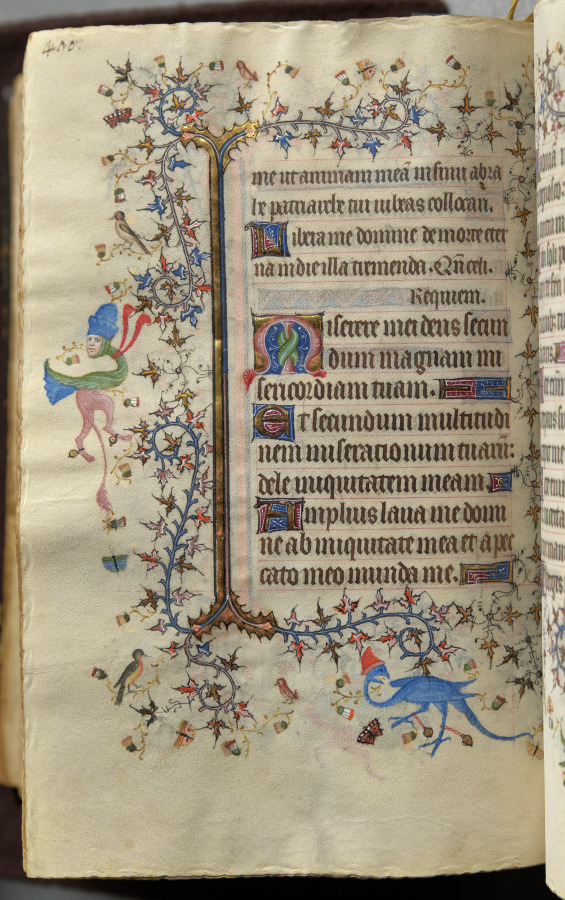 490
me ut animam meā in sinu abra
he patriarche tui iubeas collocari.
Libera me domine de morte eter
na in die illa tremenda. Qn̄ celi.
Requiem.
Miserere mei deus secun
dum magnam mi
sericordiam tuam.
Et secundum multitudi
nem miserationum tuarū:
dele iniquitatem meam.
Amplius laua me domi
ne ab iniquitate mea et a pec
cato meo munda me.